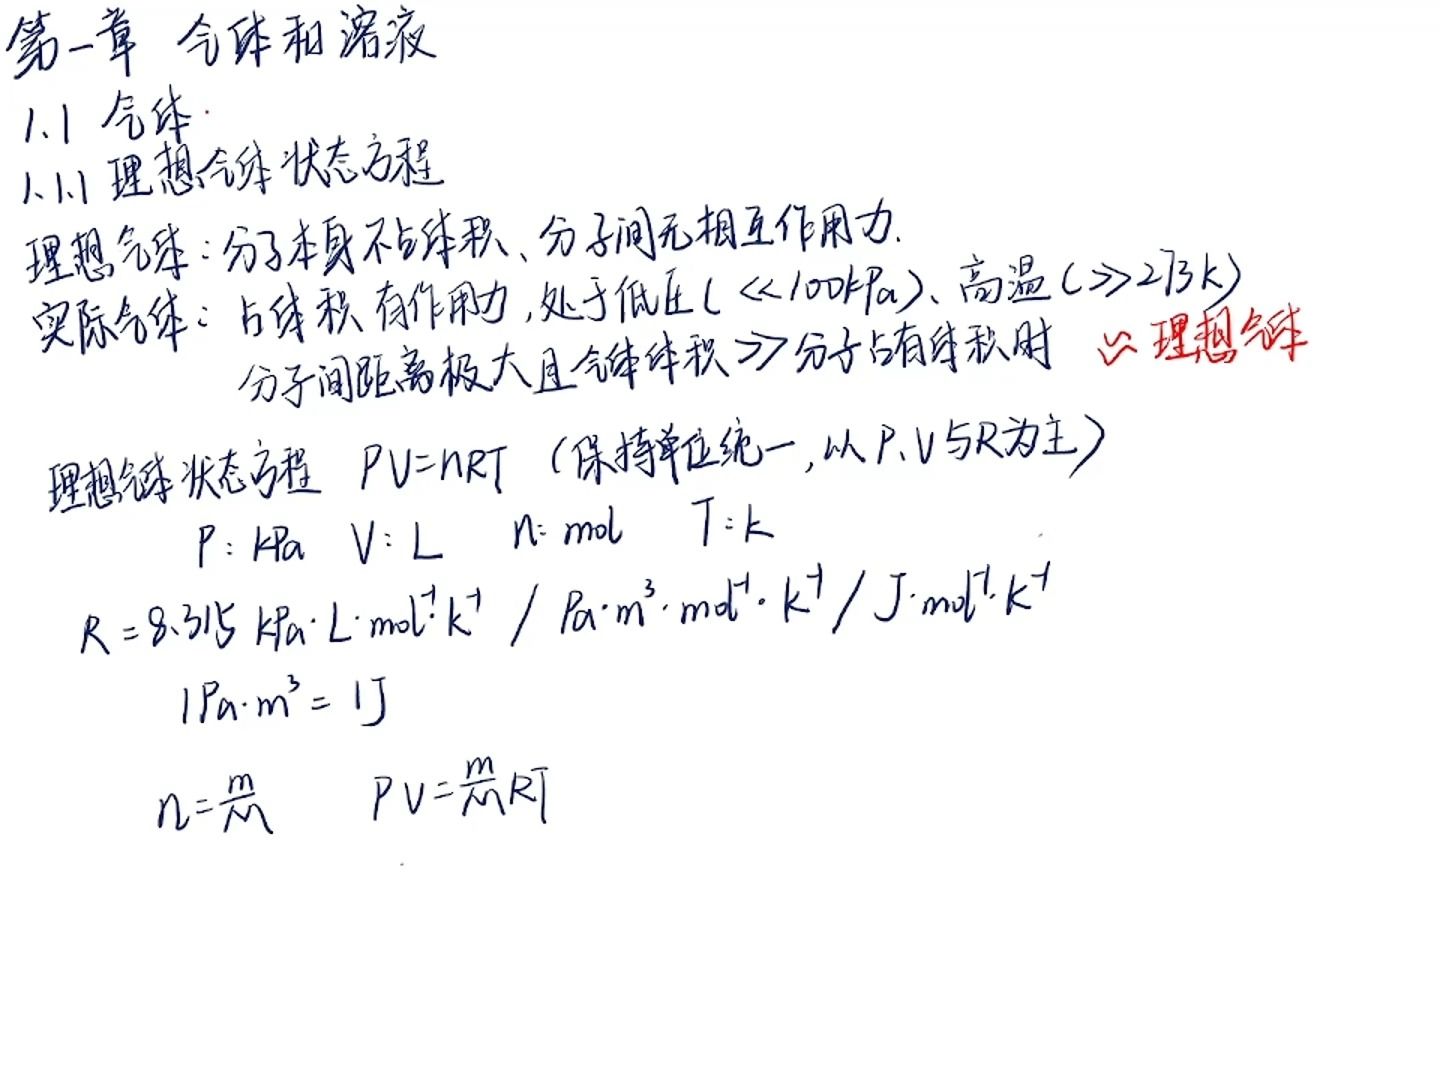 第一章 气体和溶液
1.1 气体
1.1.1 理想气体状态方程
理想气体：分子本身不占体积、分子间无相互作用力.
实际气体：占体积 有作用力，处于低压（<<100kPa）、高温（>>273k）
分子间距离极大且气体体积>>分子占有体积时 ≈理想气体
理想气体状态方程 PV=nRT （保持单位统一，以P、V与R为主）
P：kPa V：L n：mol T：k
R=8.315 kPa·L·mol⁻¹·k⁻¹ / Pa·m³·mol⁻¹·k⁻¹ / J·mol⁻¹·k⁻¹
1Pa·m³=1J
n=m/M PV=m/M RT